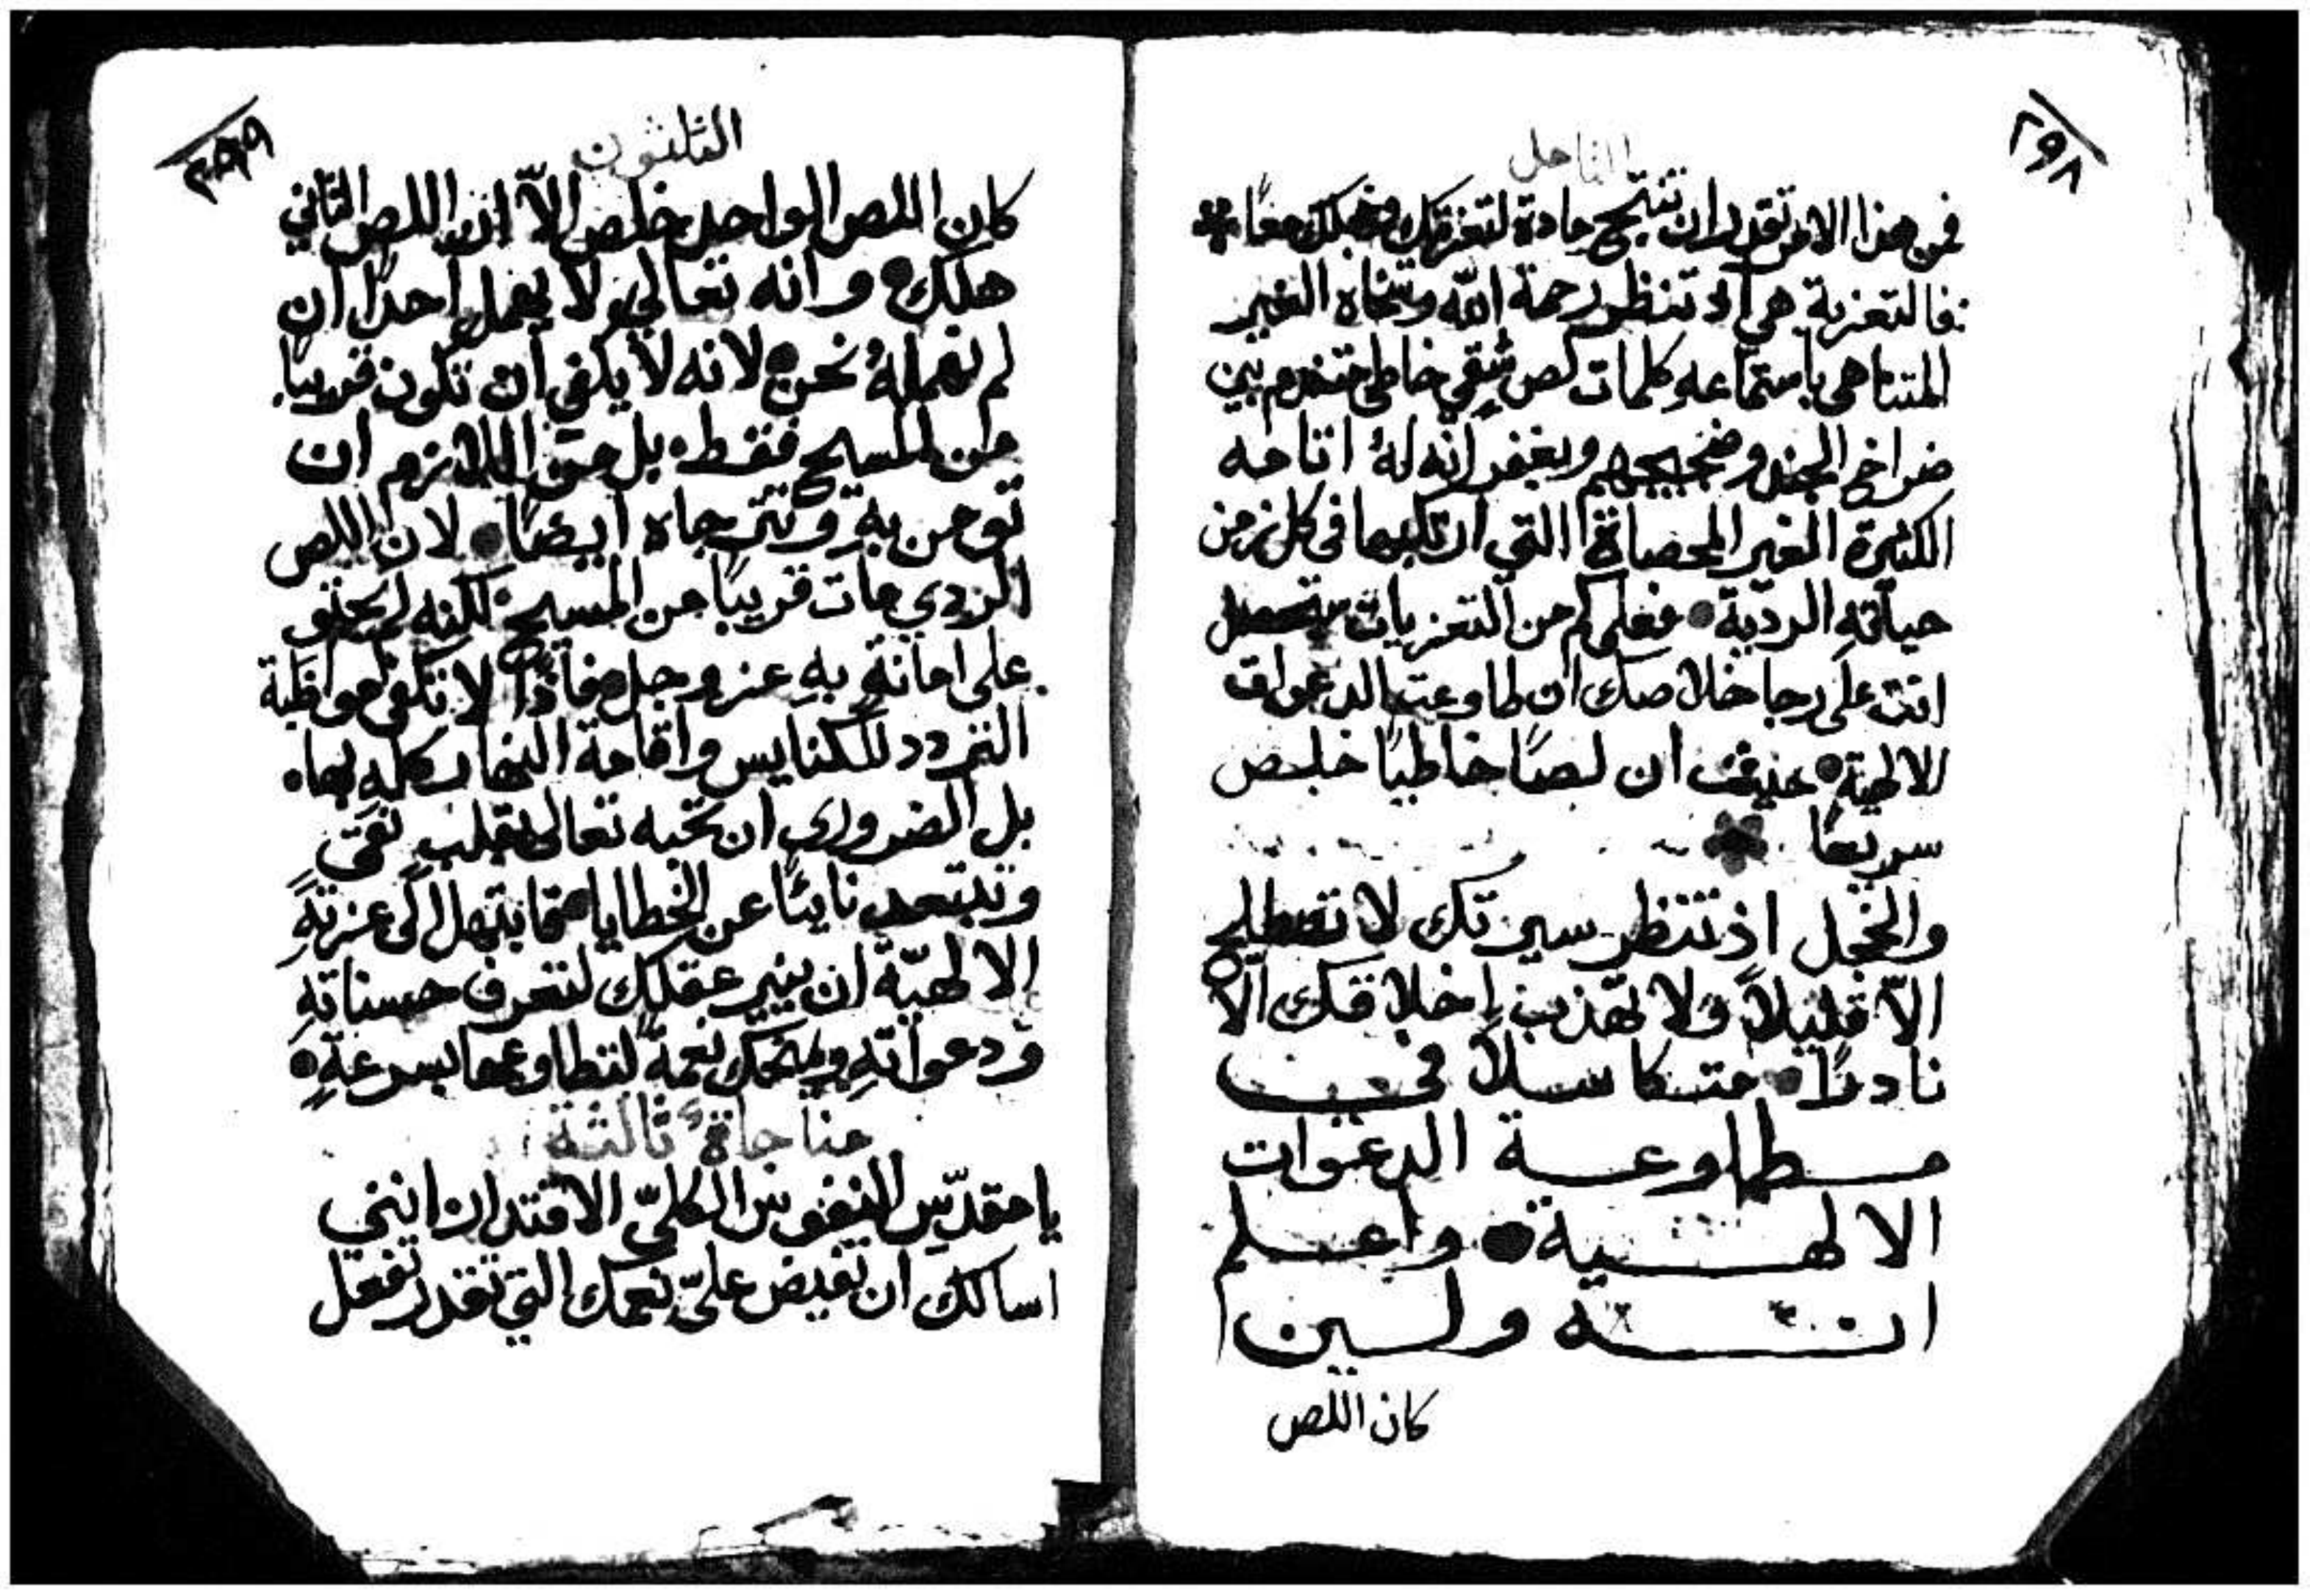 ٢٩٨
التامل
فمن هذا الامر تقدر ان تنتج مادة لتعزيتك وخجلك معًا
فالتعزية هي اذ تنظر رحمة الله وسخاه الغير
المتناهي باستماعه كلمات لص شقي خاطي متضرم بين
صراخ الجند وضجيجهم ويغفر انه له اثامه
الكثيرة الغير المحصاة التي ارتكبها في كل زمن
حياته الردية فعلى كم من التعزيات ستحصل
انت على رجا خلاصك ان طاوعت الدعوات
الالهية حيث ان لصًا خاطيًا خلص
سريعًا
والخجل اذ تنظر سيرتك لا تصطلح
الّا قليلاً ولا تهذب اخلاقك الّا
نادرًا متكاسلاً في
مطاوعة الدعوات
الالهية واعلم
انه ولين
كان اللص
٢٩٩
الثلثون
كان اللص الواحد خلص الاّ ان اللص الثاني
هلك وانه تعالى ولا يهمل احدًا ان
لم نهمله نحن لانه لا يكفي ان تكون قريبًا
من المسيح فقط بل من اللازم ان
تومن به وتترجاه ايضًا لان اللص
الردي مات قريبًا من المسيح لكنه لم يحتو
على امانة به عز وجل فاذًا لا تكفي مواظبة
التردد للكنايس واقامة النهار كله بها
بل الضروري ان تحبه تعالى بقلب نقي
وتبتعد نايئًا عن الخطايا مبتهلا الى عزته
الالهيّة ان ينير عقلك لتعرف حسناته
ودعواته ويمنحك نعمةً لتطاوعها بسرعةٍ
مناجاة ثالثة
يا مقدّس النفوس الكليّ الاقتدار انني
اسالك ان تفيض عليّ نعمك التي تقدر تفعل